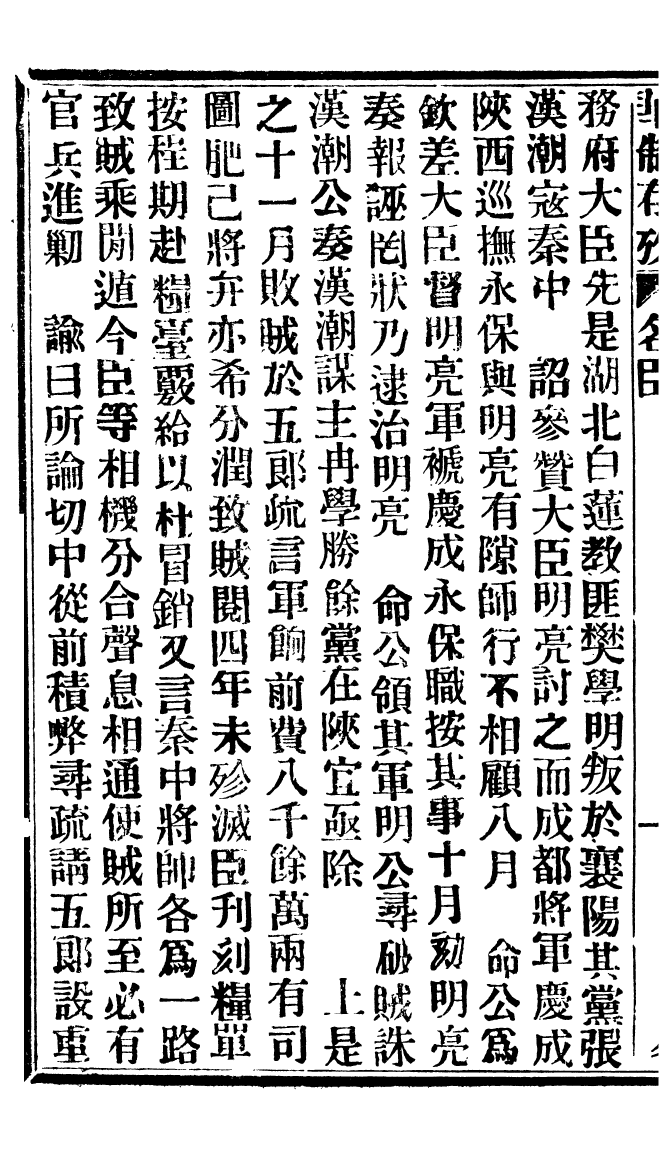 務府大臣先是湖北白蓮教匪樊學明叛於襄陽其黨張
漢潮寇秦中　詔參贊大臣明亮討之而成都將軍慶成
陝西巡撫永保與明亮有隙師行不相顧八月　命公爲
欽差大臣督明亮軍褫慶成永保職按其事十月劾明亮
奏報誣罔狀乃逮治明亮　命公領其軍明公尋破賊誅
漢潮公奏漢潮謀主冉學勝餘黨在陝宜亟除　上是
之十一月敗賊於五郎疏言軍餉前費八千餘萬兩有司
圖肥己將弁亦希分潤致賊閱四年未殄滅臣刊刻糧單
按程期赴糧臺覈給以杜冒銷又言秦中將帥各爲一路
致賊乘閒遁今臣等相機分合聲息相通使賊所至必有
官兵進勦　諭曰所論切中從前積弊尋疏請五郎設重